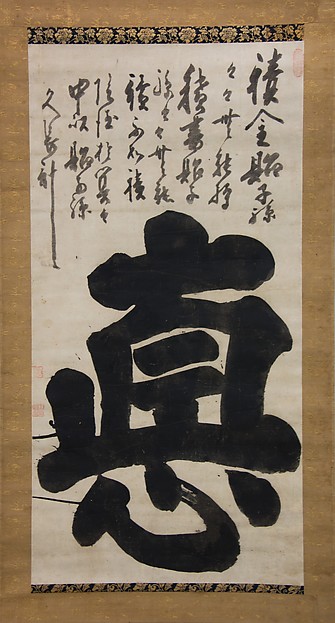 積金貽子孫
々々能
積書貽子
孫々々能
讀不如積
陰德於冥々
中以貽子孫
久長計
悳